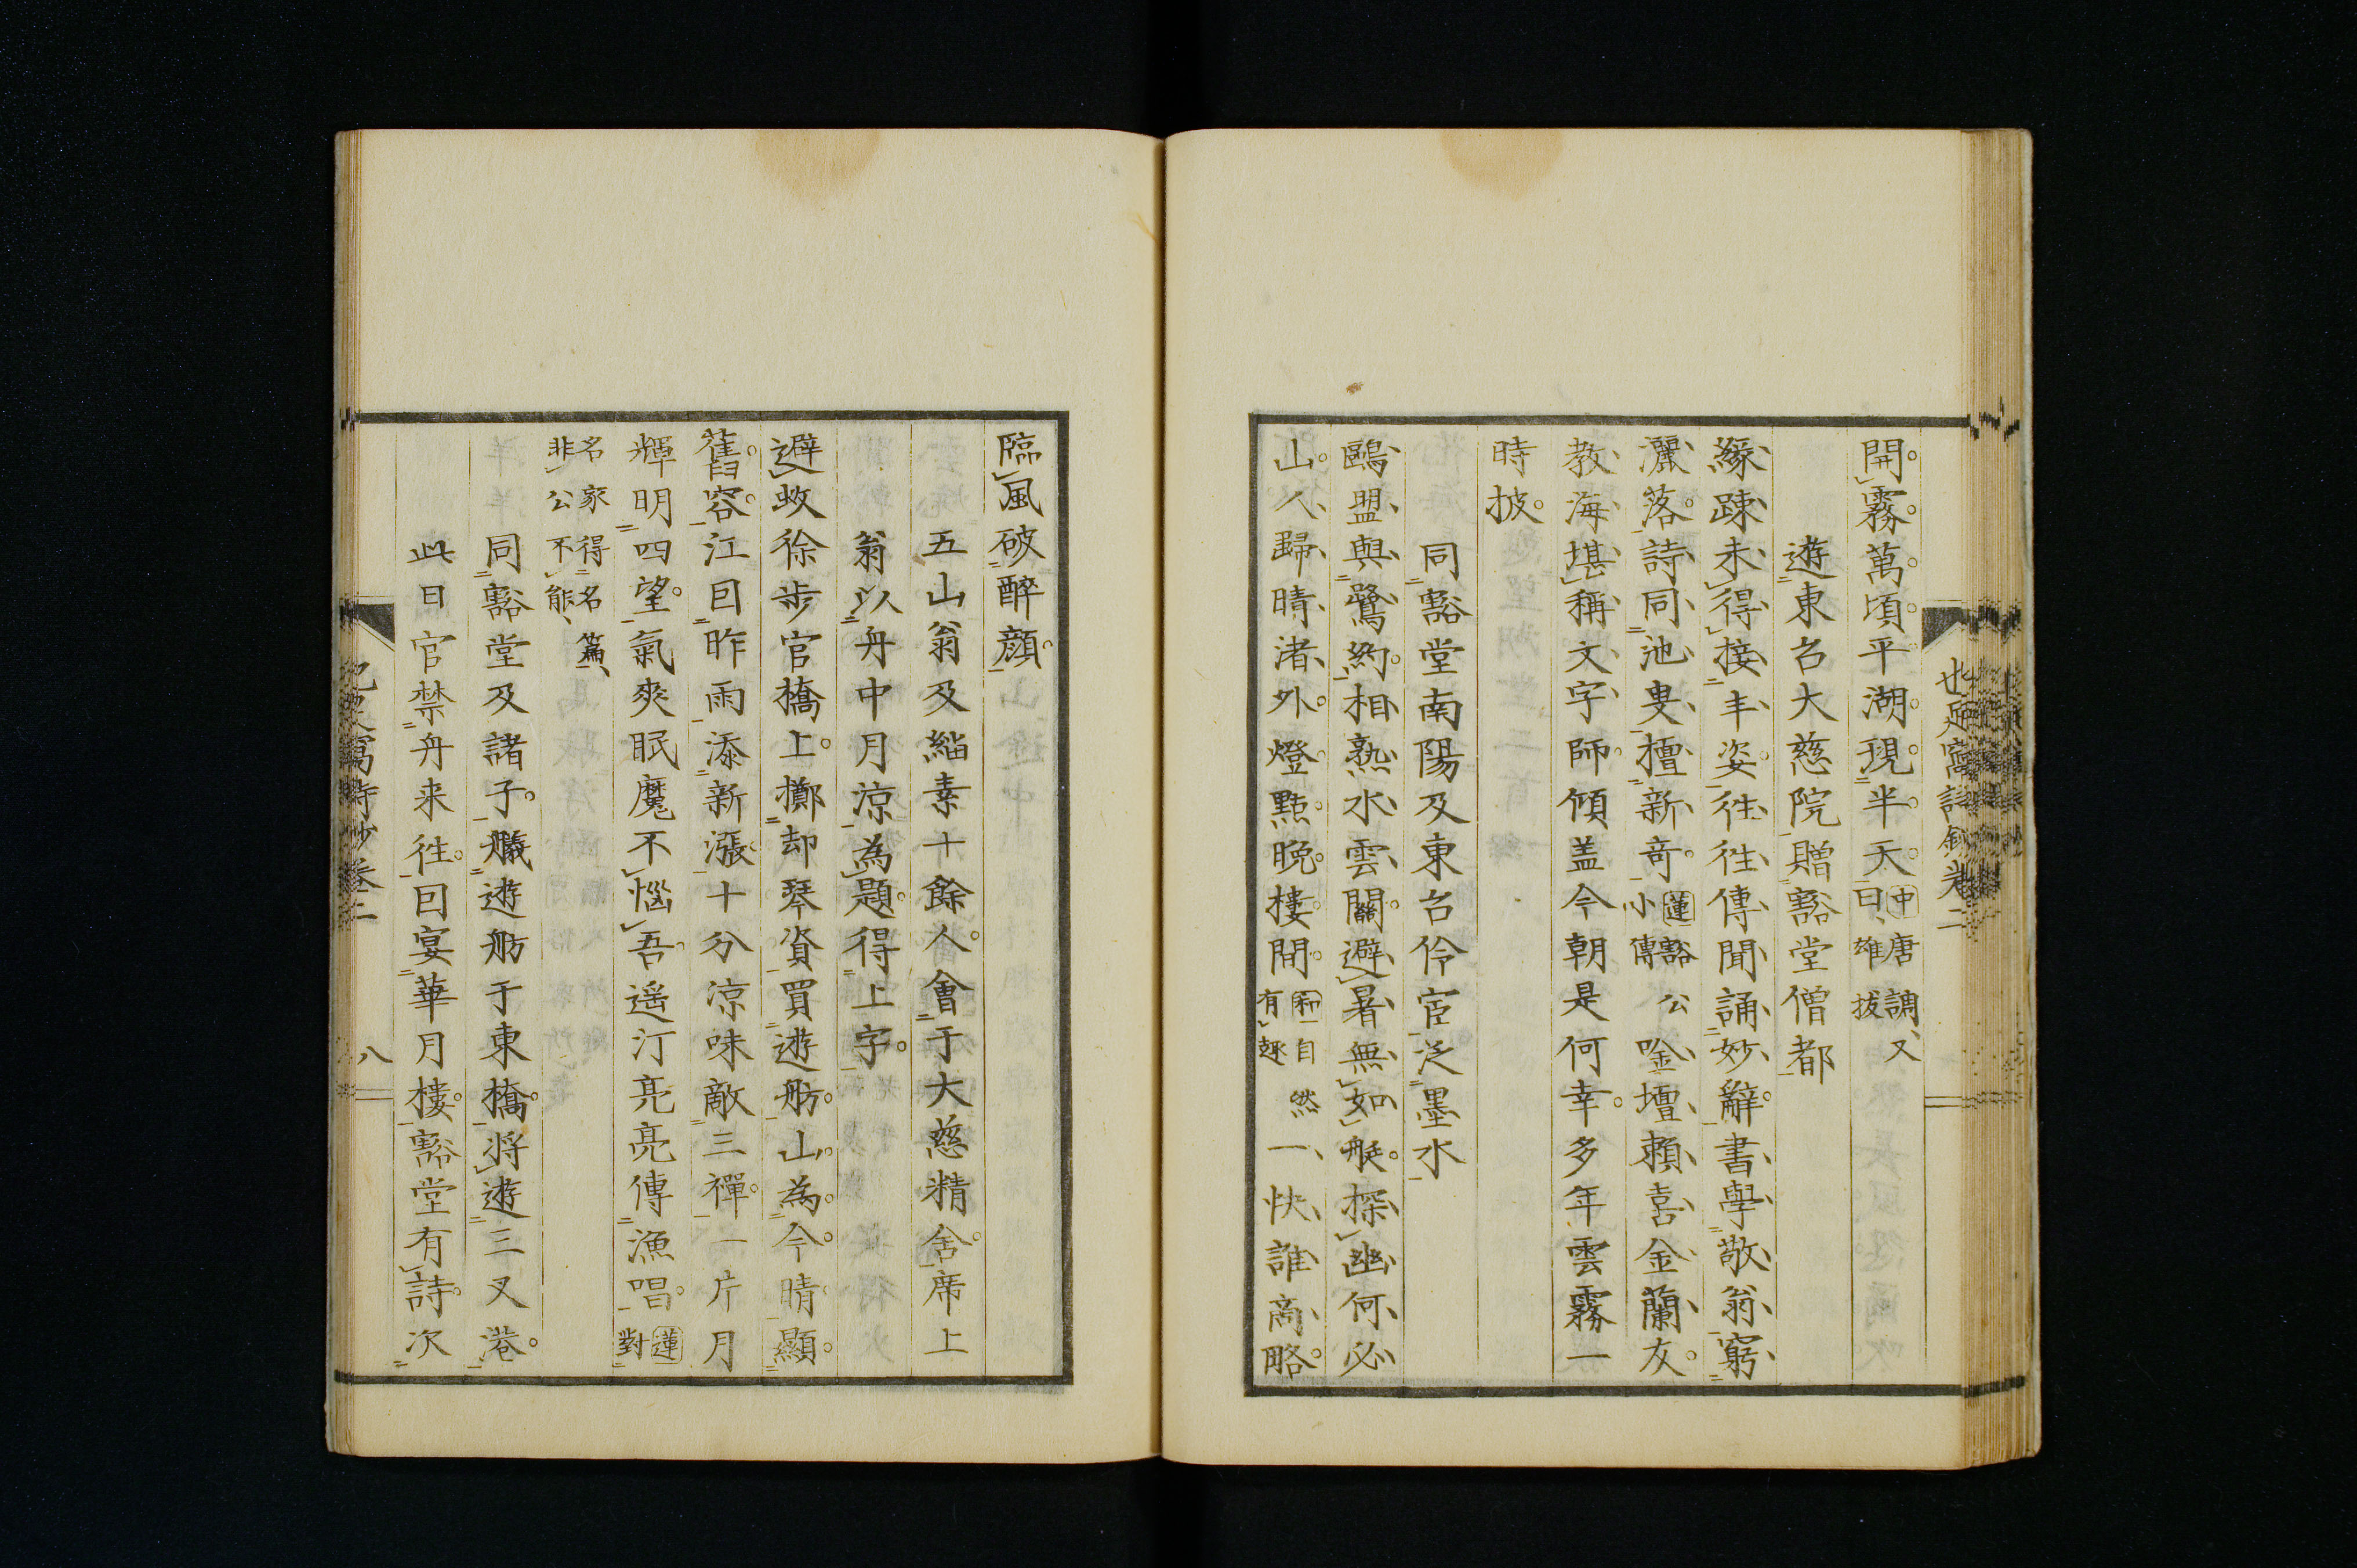 開霧萬頃平湖現半天中唐調又曰雄拔
遊東台大慈院贈豁堂僧都
緣踈未得接丰姿徃徃傳聞誦妙辭書學敬翁窮
灑落詩同池叟擅新奇蓮豁公小傳唫壇頼喜金蘭友
教海堪稱文字師傾盖今朝是何幸多年雲霧一
時披
同豁堂南陽及東台伶宦泛墨水
鷗盟與鷺約相熟水雲關避暑無如艇探幽何必
山人歸晴渚外燈點晚樓間和自然有趣一快誰商略
臨風破醉顔
五山翁及緇素十餘人會于大慈精舍席上
翁以舟中月涼為題得上字
避蚊徐步官橋上擲却琴資買遊舫山為今晴顯
舊容江回昨雨添新漲十分涼味敵三禪一片月
輝明四望氣爽眠魔不惱吾遥汀亮亮傳漁唱蓮對
名家得名篇非公不能
同豁堂及諸子艤遊舫于東橋将遊三叉港
此日官禁舟来徃回宴華月樓豁堂有詩次
也足窩詩鈔卷二
八